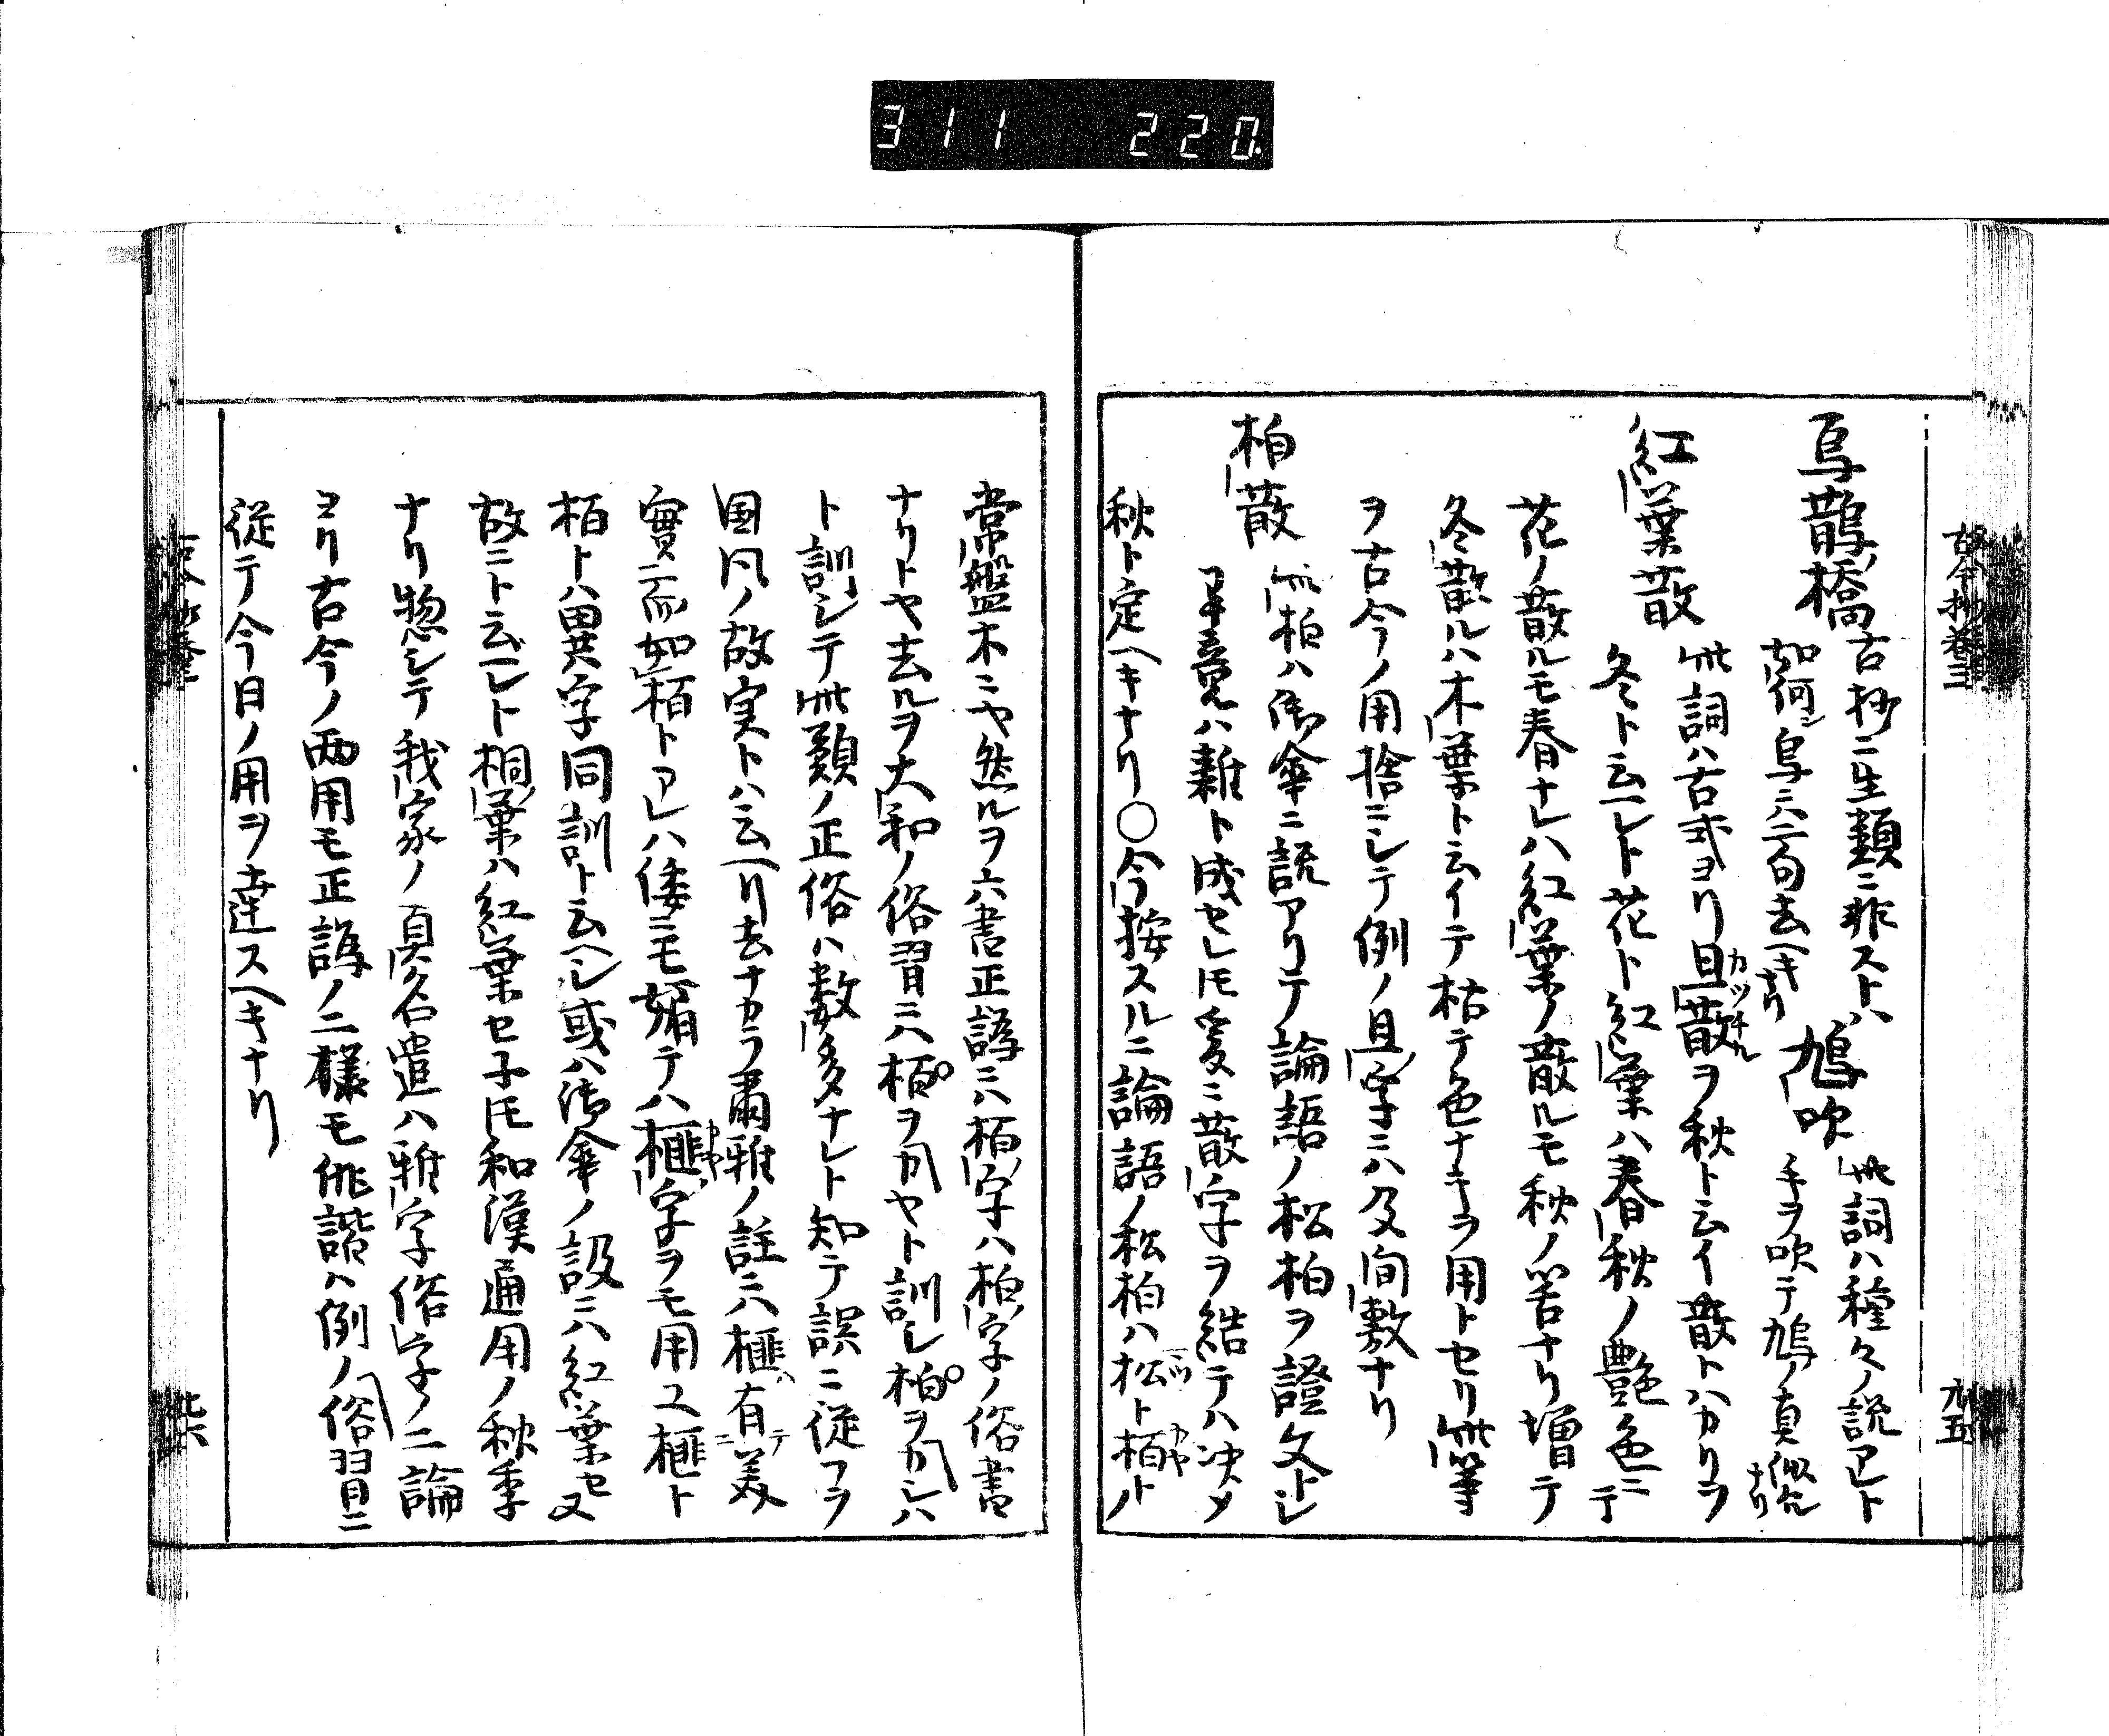 311 220
古今抄卷三
九五
烏鵲ノ橋 古抄ニ生類ニ非ストハ
如何ン烏ニハ二句去ヘキナリ
鳩吹 此詞ハ種々ノ説アレト
手ヲ吹テ鳩ノ真似ナリ
紅葉散 此詞ハ古式ヨリ且散ヲ秋ト云イ散トハカリヲ
カツチル
冬ト云ヘレト花ト紅葉ハ春秋ノ艶色ニテ
花ノ散ルモ春ナレハ紅葉ノ散ルモ秋ノ筈ナリ増テ
冬散ルハ木葉ト云イテ枯テ色ナキヲ用トセリ此等
ヲ古今ノ用捨ニシテ例ノ且ノ字ニハ及間敷ナリ
柏散 此柏ハ御傘ニ説アリテ論語ノ松柏ヲ證文トシ
畢竟ハ雑ト成セレ𪜈爰ニ散ノ字ヲ結テハ决メ
秋ト定ヘキナリ〇今按スルニ論語ノ松柏ハ松ト栢トノ
マツ カヤ
常盤木ニヤ然ルヲ六書正譌ニハ栢ノ字ハ柏ノ字ノ俗書
ナリトヤ去ルヲ大和ノ俗習ニハ栢ヲカヤト訓シ柏ヲカシハ
ト訓シテ此類ノ正俗ハ数多ナレト知テ誤ニ従フヲ
国凡ノ故実トハ云ヘリ去ナカラ爾雅ノ註ニハ榧ハ有テ美
實ニ而如栢トアレハ倭ニモ媚テハ榧ノ字ヲモ用ユ榧ト
カヤ
栢トハ異字同訓ト云ヘシ或ハ御傘ノ設ニハ紅葉セヌ
故ニト云ヘレト桐ノ葉ハ紅葉セ子𪜈和漢通用ノ秋季
ナリ惣シテ我家ノ真名遣ハ雅字俗字ノ二論
ヨリ古今ノ両用モ正譌ノ二様モ俳諧ハ例ノ俗習ニ
従テ今日ノ用ヲ達スヘキナリ